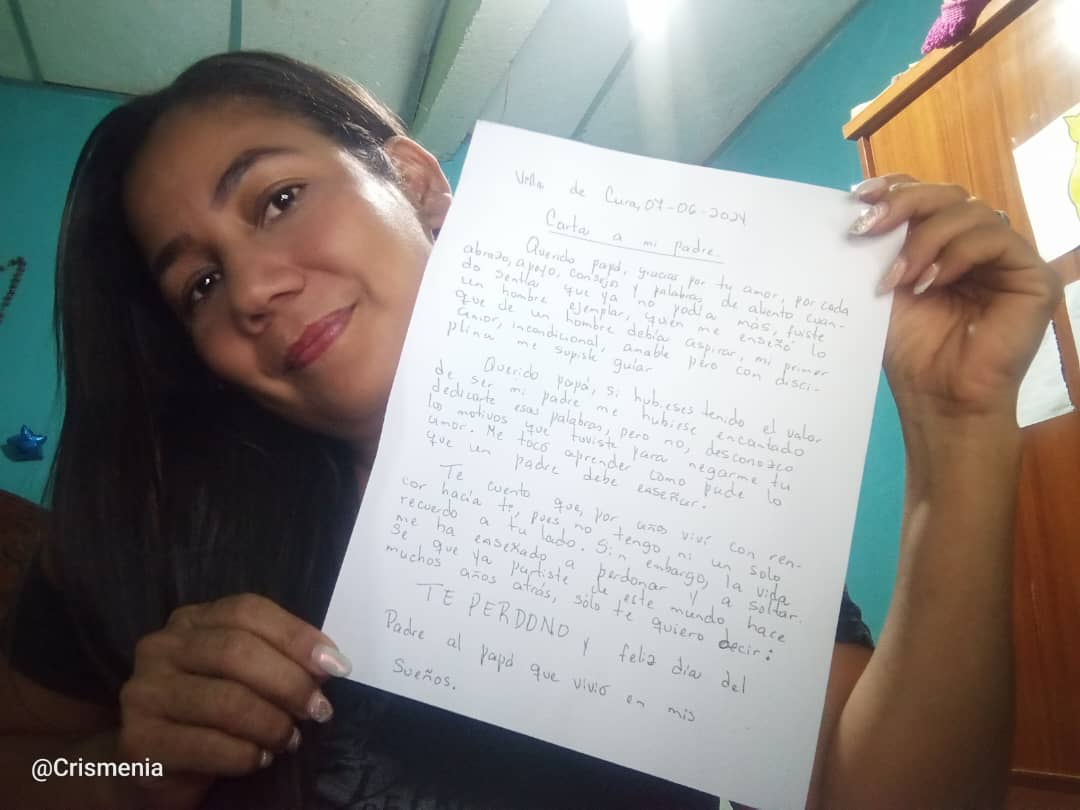 Villa de Cura, 07-06-2024
Carta a mi padre.
Querido papá, gracias por tu amor, por cada
abrazo, apoyo, consejos y palabras de aliento cuan-
do sentía que ya no podía más, fuiste
un hombre ejemplar, quien me enseñó lo
que de un hombre debía aspirar, mi primer
amor, incondicional, amable pero con disci-
plina me supiste guiar
Querido papá, si hubieses tenido el valor
de ser mi padre me hubiese encantado
dedicarte esas palabras, pero no, desconozco
los motivos que tuviste para negarme tu
amor. Me tocó aprender como pude lo
que un padre debe enseñar.
Te cuento que, por años viví con ren-
cor hacía ti, pues no tengo ni un solo
recuerdo a tu lado. Sin embargo, la vida
me ha enseñado a perdonar y a soltar.
Se que ya partiste de este mundo hace
muchos años atrás, sólo te quiero decir:
TE PERDONO y feliz día del
Padre al papá que vivió en mis
Sueños.
@Crismenia